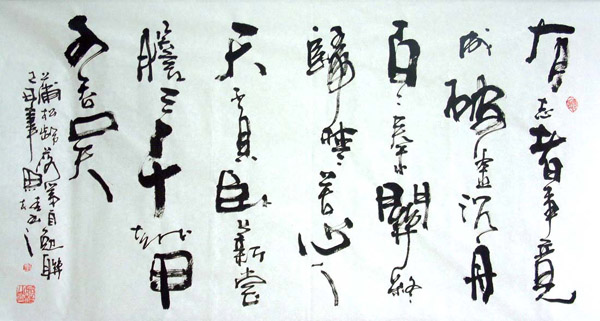 有志者事竟
成破釜沉舟
百二秦關終
歸楚苦心人
天不負臥薪嘗
膽三千越甲
可吞吳
蒲松齡落第自勉聯